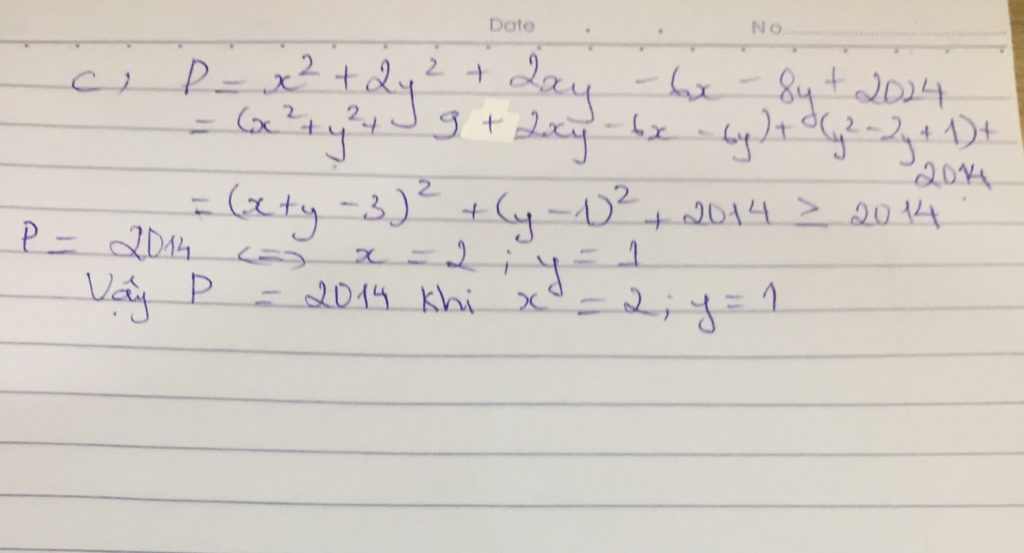 Date No
c, P = x² + 2y² + 2xy - 6x - 8y + 2024
= (x² + y² + 9 + 2xy - 6x - 6y) + (y² - 2y + 1) +
2014
= (x + y - 3)² + (y - 1)² + 2014 ≥ 2014
P = 2014 <=> x = 2 ; y = 1
Vậy P = 2014 khi x = 2 ; y = 1